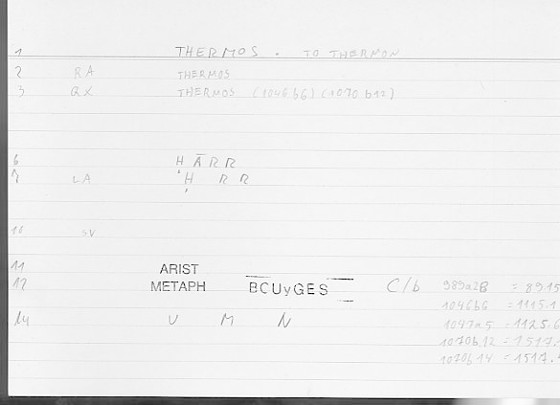 1 THERMOS. TO THERMON
2 RA THERMOS
3 QX THERMOS (1046b6) (1070b12)
6 HĀRR
7 LA H RR
10 SV
11 ARIST
12 METAPH BCUyGES C/b 989a28 = 89.15
1046b6 = 1115.1
1047a5 = 1125.6
14 U M N 1070b12 = 1517.
1070b14 = 1517.